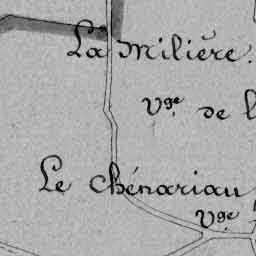 La Milière.
Vge. de l
Le Chénariau
Vge.